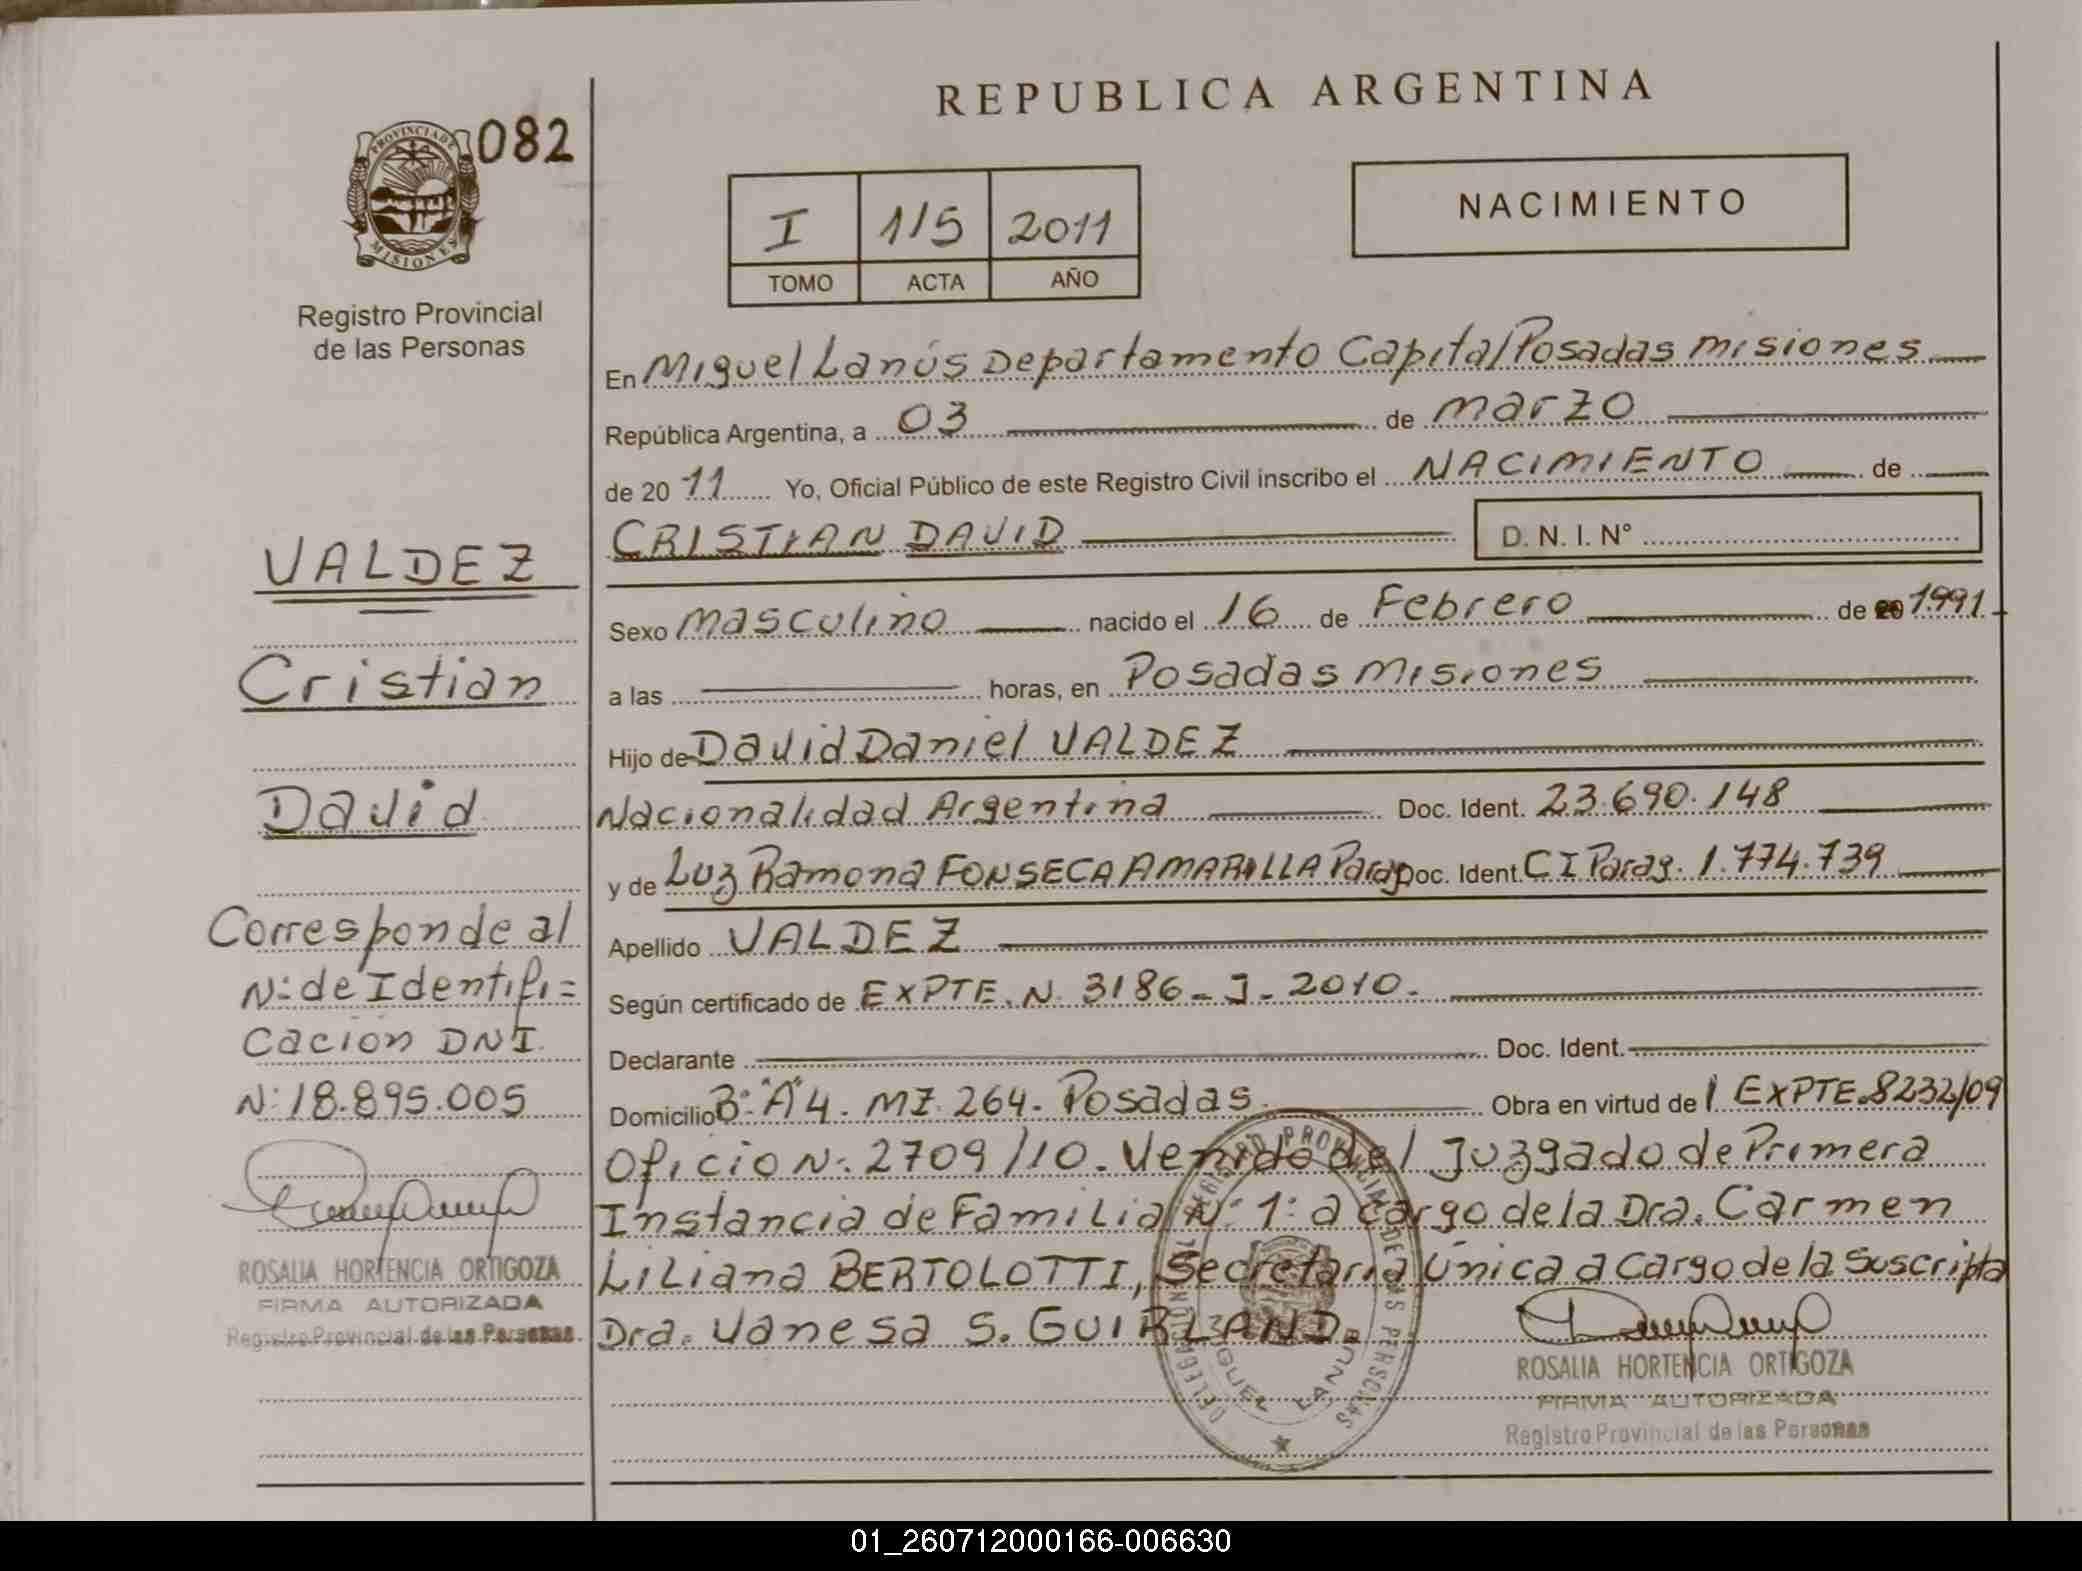 REPUBLICA ARGENTINA
082
PROVINCIA DE
MISIONES
Registro Provincial
de las Personas
I 1/5 2011
TOMO ACTA AÑO
NACIMIENTO
En Miguel Lanús Departamento Capital Posadas Misiones
República Argentina, a 03 de marzo
de 20 11 Yo, Oficial Público de este Registro Civil inscribo el NACIMIENTO de
CRISTIAN DAVID D. N. I. N°
Sexo masculino nacido el 16 de Febrero de 1991
a las horas, en Posadas Misiones
Hijo de David Daniel VALDEZ
Nacionalidad Argentina Doc. Ident. 23.690.148
y de Luz Ramona FONSECA AMARILLA Parag Doc. Ident. C I Parag. 1.774.739
Apellido VALDEZ
Según certificado de EXPTE. N. 3186 - J - 2010.
Declarante Doc. Ident.
Domicilio B: "A" 4. MZ. 264. Posadas Obra en virtud de EXPTE. 8232/09
Oficio N: 2709/10. Venido del Juzgado de Primera
Instancia de Familia N: 1: a cargo de la Dra. Carmen
Liliana BERTOLOTTI, Secretaria Única a cargo de la Suscripta
Dra. Vanesa S. GUIRLAND
VALDEZ
Cristian
David
Corresponde al
N: de Identifi=
cación DNI
N: 18.895.005
ROSALIA HORTENCIA ORTIGOZA
FIRMA AUTORIZADA
Registro Provincial de las Personas
ROSALIA HORTENCIA ORTIGOZA
FIRMA AUTORIZADA
Registro Provincial de las Personas
01_260712000166-006630